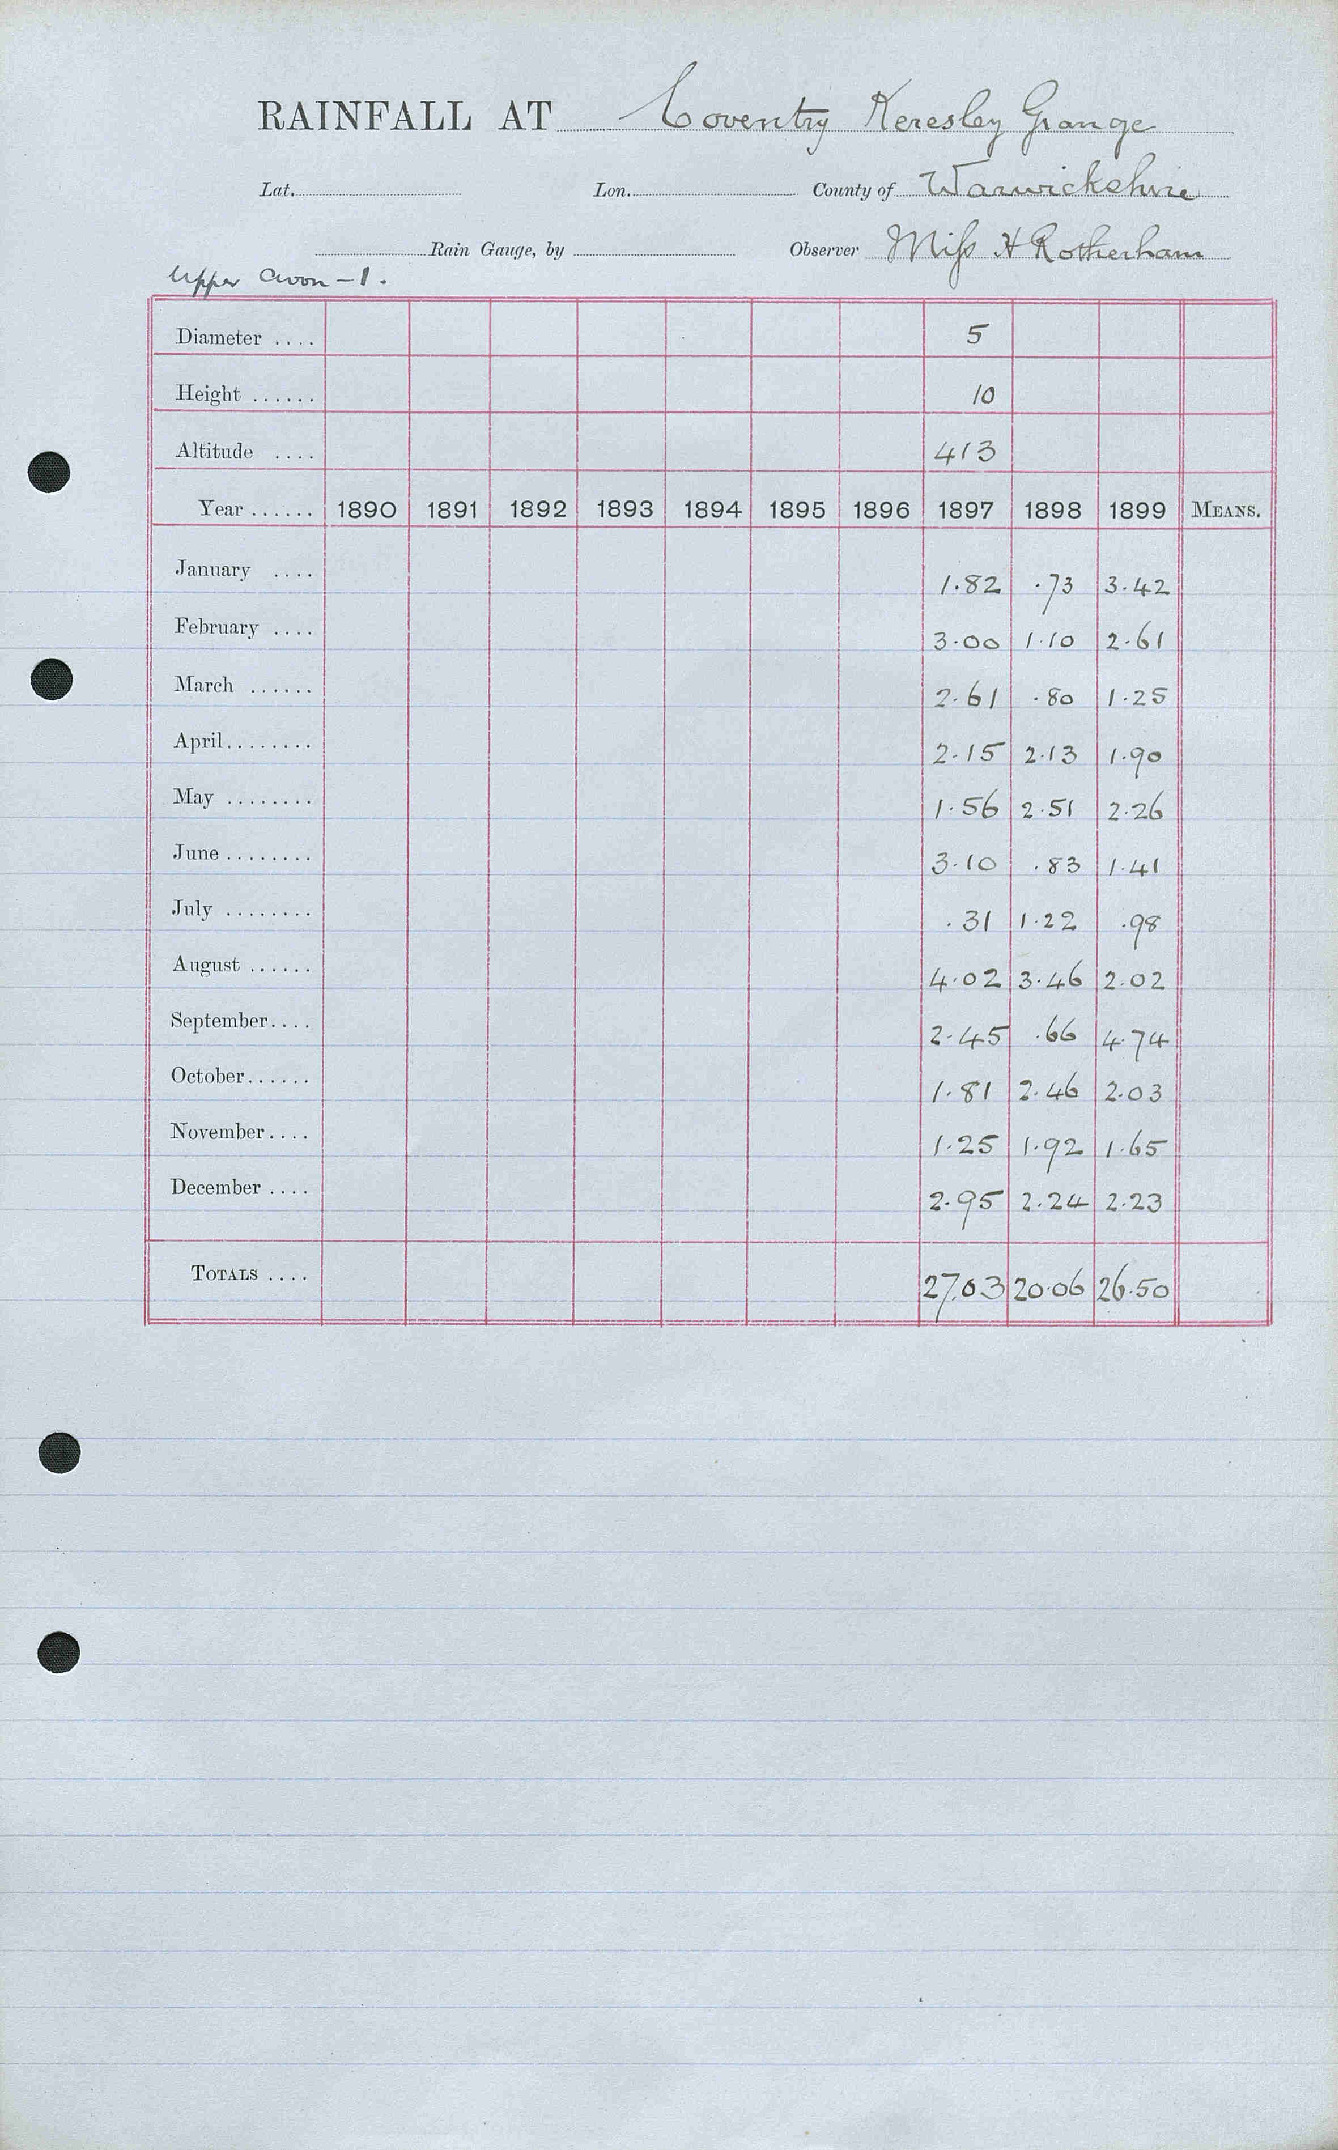 RAINFALL AT Coventry Keresley Grange
Lat. Lon. County of Warwickshire
Rain Gauge, by Observer Miss H Rotherham
Upper Avon - 1.
Diameter .... 5
Height ...... 10
Altitude .... 413
Year ...... 1890 1891 1892 1893 1894 1895 1896 1897 1898 1899 MEANS.
January .... 1.82 .73 3.42
February .... 3.00 1.10 2.61
March ...... 2.61 .80 1.25
April........ 2.15 2.13 1.90
May ........ 1.56 2.51 2.26
June ........ 3.10 .83 1.41
July ........ .31 1.22 .98
August ...... 4.02 3.46 2.02
September.... 2.45 .66 4.74
October...... 1.81 2.46 2.03
November.... 1.25 1.92 1.65
December .... 2.95 2.24 2.23
TOTALS .... 27.03 20.06 26.50